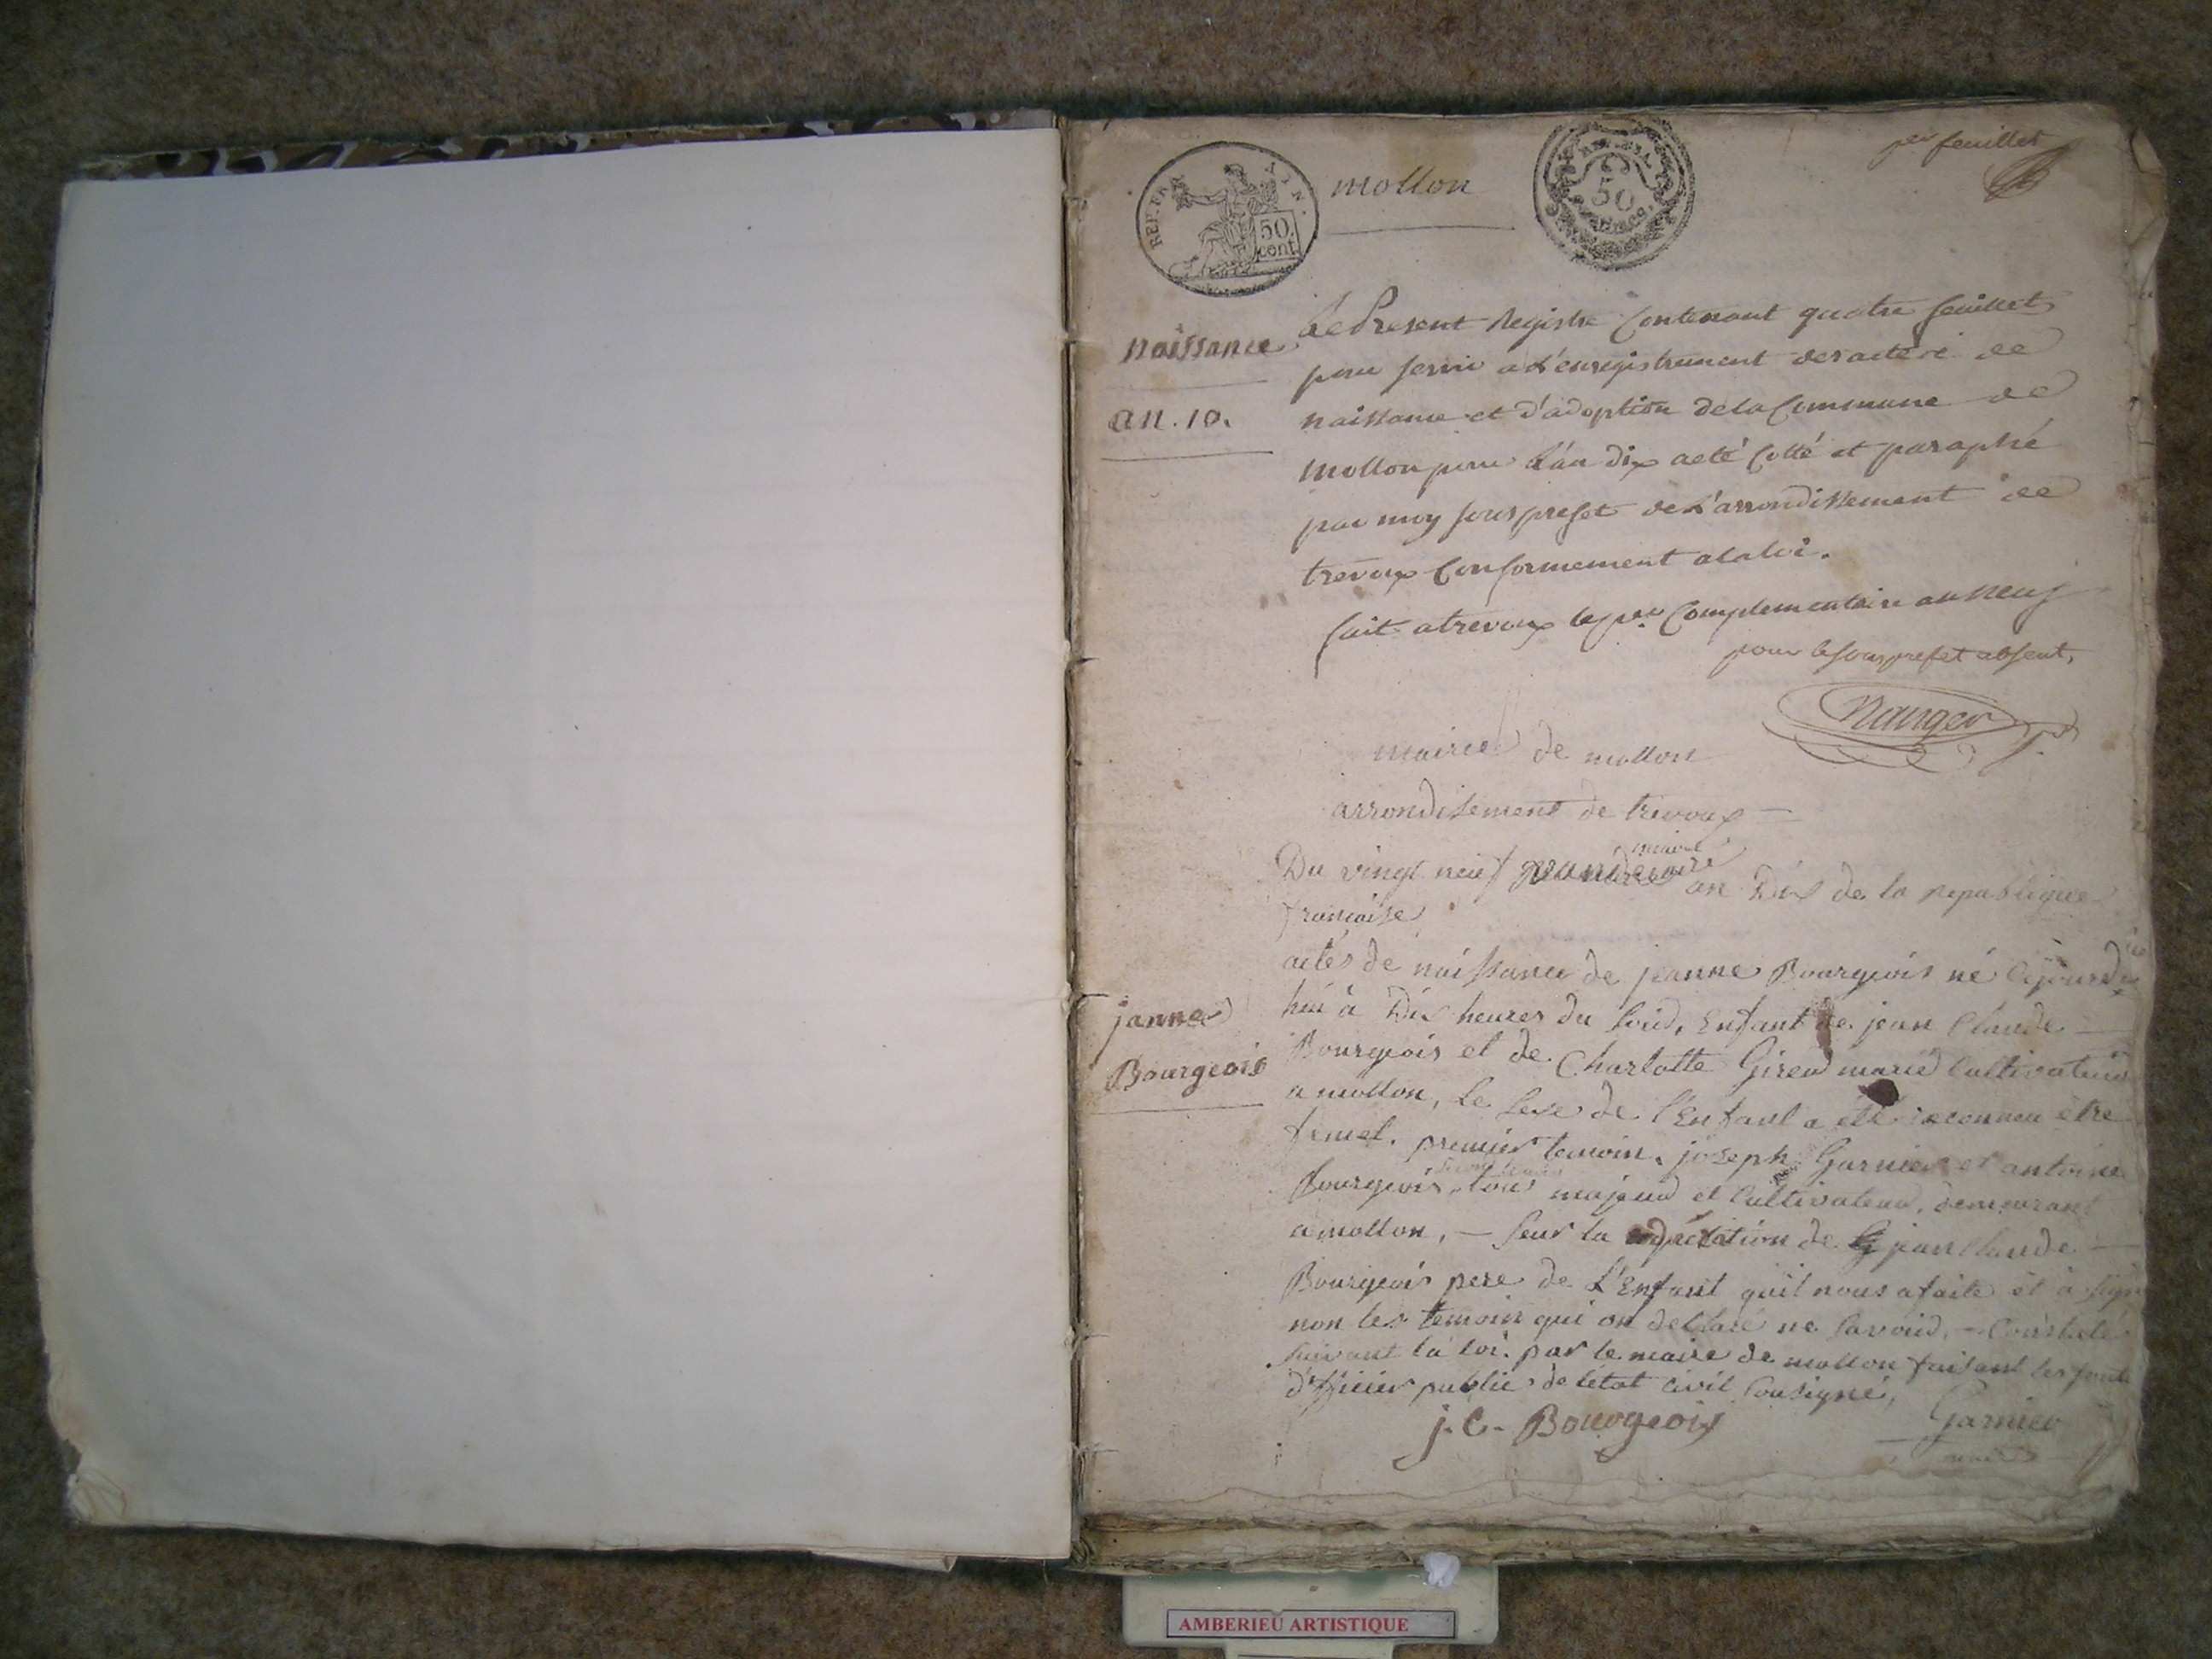 per feuillet
mollon
REP. FRA
50
cent
50
naissance
an. 10.
Le Present Registre Contenant quatre feuillets
pour servir a L'enregistrement des actes de
naissance et d'adoption de la Commune de
Mollon pour L'an dix a eté Cotté et paraphé
par moy sous prefet de L'arrondissement de
trevoux Conformement a la loi.
fait a trevoux le per Complementaire an neuf
pour le sous prefet absent,
mairie de mollon
arrondisement de trevoux —
Du vingt neuf an Dix de la republique
francaise
janne
Bourgeois
actes de naissance de jeanne Bourgeois né
hui à Dix heures du soird, Enfant de jean Claude —
Bourgeois et de Charlotte Gireud marié Cultivateurd
a mollon, Le sexe de l'Enfant a été reconnu etre
femel. premier temoin, joseph Garnier et antoine
Bourgeois, second temoin tous majeud et Cultivateud, demeurant
a mollon, — seur la de jean Claude —
Bourgeois pere de L'Enfant quil nous a faite et a
non les temoin qui on declaré ne savoird, — Constaté
suivant la loi. par le maire de mollon faisant les
d'officier public de létat civil sousigné,
j. C. Bourgeois
Garnier
AMBERIEU ARTISTIQUE